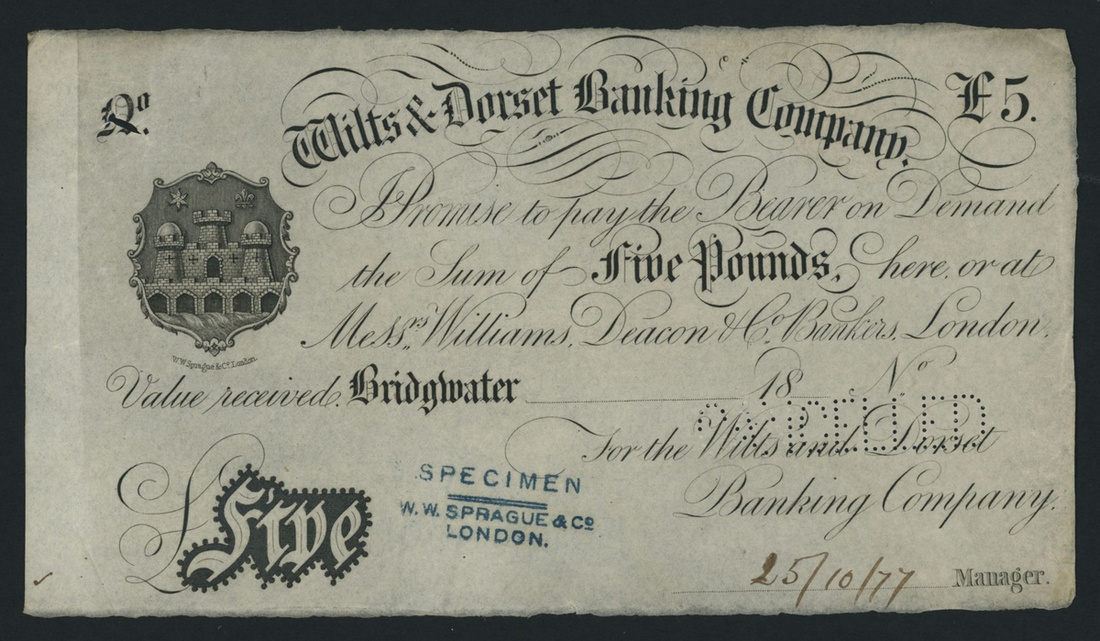 No.
£5.
Wilts & Dorset Banking Company.
I Promise to pay the Bearer on Demand
the Sum of Five Pounds, here, or at
Messrs. Williams, Deacon & Co. Bankers, London.
W.W. Sprague & Co. London.
Value received. Bridgwater 18 No
CANCELLED
For the Wilts and Dorset
Banking Company.
£ Five
SPECIMEN
W. W. SPRAGUE & Co
LONDON.
25/10/77 Manager.